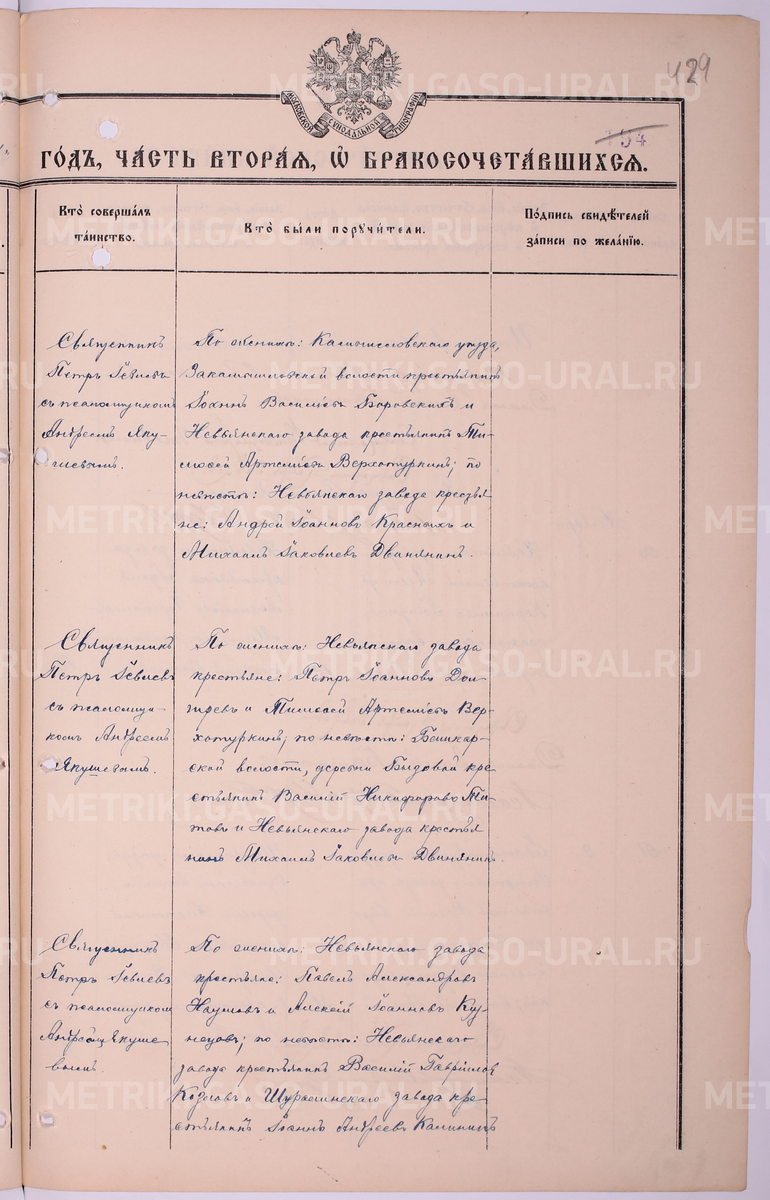 429
МОСКОВСКОЙ СѴНОДАЛЬНОЙ ТИПОГРАФІИ
ГО́ДЪ, ЧА́СТЬ ВТОРА́Я, Ѽ БРАКОСОЧЕТА́ВШИХСЯ.
Кто̀ соверша́лъ
та́инство.
Кто̀ бы́ли порꙋчи́тели.
По́дпись свидѣ́телей
за́писи по жела́нїю.
Священникъ
Петръ Іевлевъ
съ псаломщикомъ
Андреемъ Яку-
шевымъ.
По женихѣ: Камышловскаго уѣзда,
Закамышловской волости крестьянинъ
Іоаннъ Васильевъ Боровскихъ и
Невьянскаго завода крестьянинъ Ти-
мофей Артемьевъ Верхотуркинъ; по
невѣстѣ: Невьянскаго завода крестья-
не: Андрей Іоанновъ Красныхъ и
Михаилъ Іаковлевъ Двинянинъ.
Священникъ
Петръ Іевлевъ
съ псаломщи-
комъ Андреемъ
Якушевымъ.
По женихѣ: Невьянскаго завода
крестьяне: Петръ Іоанновъ
и Тимофей Артемьевъ Вер-
хотуркинъ; по невѣстѣ:
ской волости, деревни Быдовой кре-
стьянинъ Василій Никифоровъ Ти-
товъ и Невьянскаго завода крестья
нинъ Михаилъ Іаковлевъ Двинянинъ.
Священникъ
Петръ Іевлевъ
съ псаломщикомъ
Андреемъ Якуше
вымъ.
По женихѣ: Невьянскаго завода
крестьяне: Павелъ Александровъ
Наумовъ и Алексій Іоанновъ Куз-
нецовъ; по невѣстѣ: Невьянскаго
завода крестьянинъ Василій Гавріиловъ
Козловъ и Шуралинскаго завода кре-
стьянинъ Іоаннъ Андреевъ Калининъ
METRIKI.GASO-URAL.RU